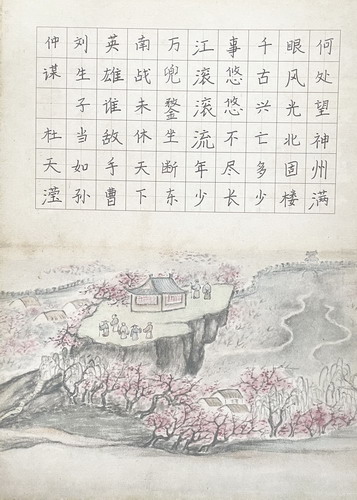 何处望神州满
眼风光北固楼
千古兴亡多少
事悠悠不尽长
江滚滚流年少
万兜鍪坐断东
南战未休天下
英雄谁敌手曹
刘生子当如孙
仲谋 杜天滢